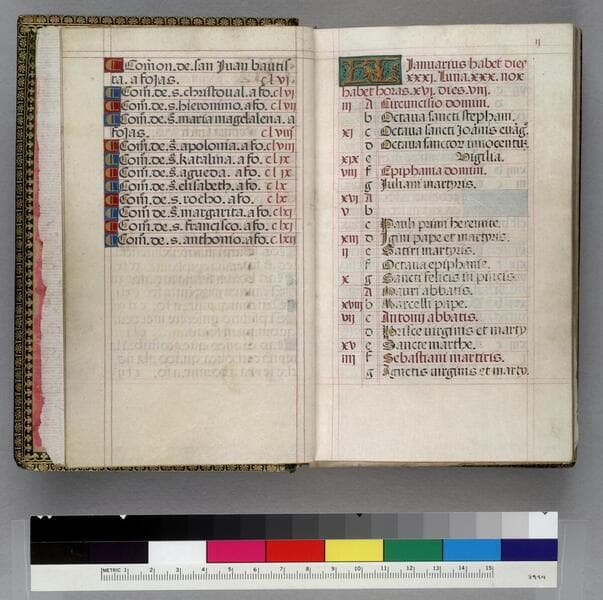 Comon. de. san Juan bautis
ta. a fojas. clvi
Com̃. de. s. christoual. a fo. clvi
Com̃. de. s. hieronimo. a fo. clvii
Com̃. de. s̃. maria magdalena. a
fojas. clviii
Com̃. de. s̃. apolonia. a fo. clviii
Com̃. de. s̃. katalina. a fo. clix
Com̃. de. s̃. agueda. a fo. clix
Com̃. de. s̃. elisabeth. a fo. clx
Com̃. de. s. rocho. a fo. clx
Com̃. de. s̃. margarita. a fo. clxi
Com̃. de. s. francisco. a fo. clxi
Com̃. de. s. anthonio. a fo. clxii
ij
KL Januarius habet dies
xxxi. Luna. xxx. nox
habet horas. xvi. dies. viii.
iii A Circuncisio domini.
b Octaua sancti stephani.
xi c Octaua sancti Joãnis euãg̃.
d Octaua sanctor̃ innocentiũ.
xix e Vigilia.
viii f Epiphania domini.
g Juliani martyris.
xvi A
v b
c Pauli primi heremite.
xiii d Igini pape et martyris.
ii e Satiri martyris.
f Octaua epiphanie.
x g Sancti felicis in pincis.
A Mauri abbatis.
xviii b Marcelli pape.
vii c Antonij abbatis.
d Prisce virginis et marty
xv e Sancte marthe.
iiii f Sebastiani martiris.
g Agnetis virginis et marty.
METRIC 1 2 3 4 5 6 7 8 9 10 11 12 13 14 15